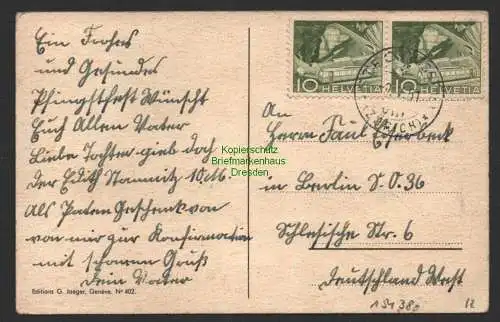 Ein Frohes
und Gesundes
Pfingstfest Wünscht
Euch Allen Vater
Liebe Tochter gieb doch
der Edith 10 M.
Als Paten Geschenk von
von mir zur Konfirmation
mit schönen Gruß
Dein Vater
Editions G. Jaeger, Genève, Nº 402.
10 HELVETIA
10 HELVETIA
(ZÜRICH)
An
Herrn Paul
in Berlin S.O. 36
Schlesische Str. 6
Deutschland West
Kopierschutz
Briefmarkenhaus
Dresden